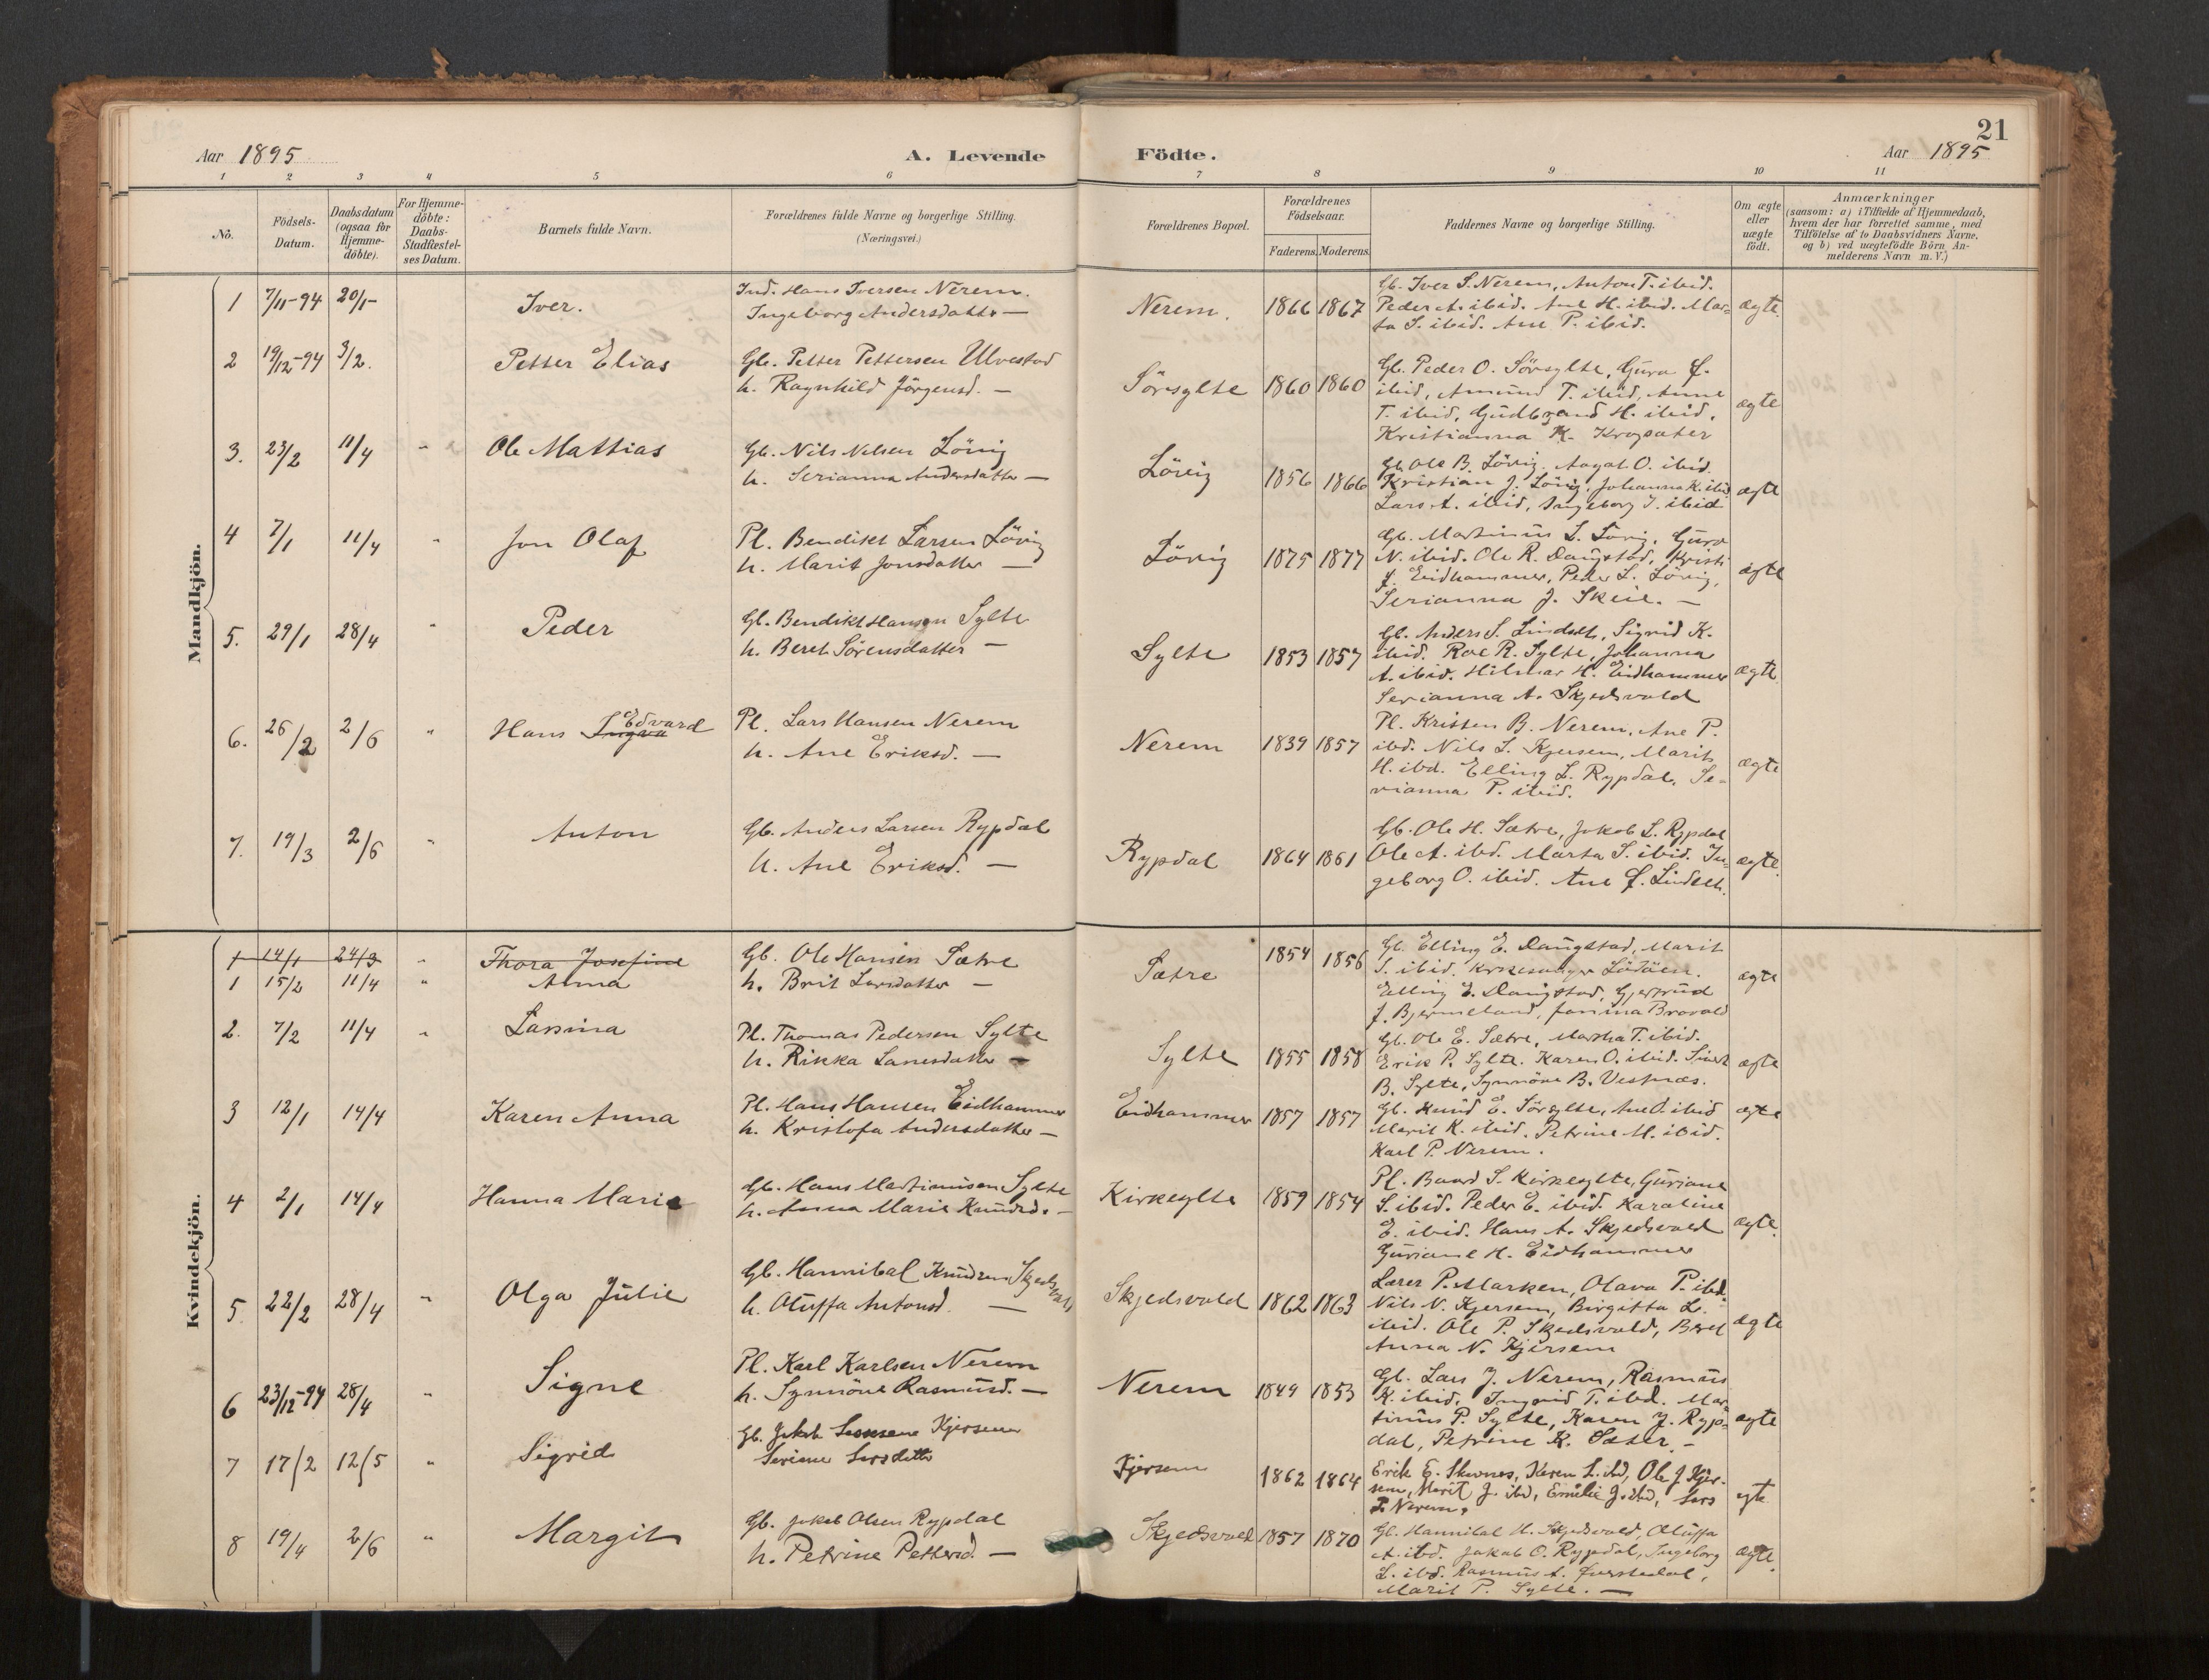 21
Aar 1895
A. Levende
Födte.
Aar 1895
1 2 3 4 5 6 7 8 9 10 11
No.
Födsels-
Datum.
Daabsdatum
(ogsaa for
Hjemme-
döbte).
For Hjemme-
döbte:
Daabs-
Stadfæstel-
ses Datum.
Barnets fulde Navn.
Forældrenes fulde Navne og borgerlige Stilling.
(Næringsvei.)
Forældrenes Bopæl.
Forældrenes
Födselsaar.
Faderens. Moderens.
Faddernes Navne og borgerlige Stilling.
Om ægte
eller
uægte
födt.
Anmærkninger
(saasom: a) i Tilfælde af Hjemmedaab,
hvem der har forrettet samme, med
Tilföielse af to Daabsvidners Navne,
og b) ved uægtefödte Börn An-
melderens Navn m. V.)
Mandkjön.
1 7/11-94 20/1- Iver.
Ind. Hans Iversen Nerem.
Ingeborg Andersdatter —
Nerem. 1866 1867
Gb. Iver S. Nerem, Anton T. ibid.
Peder A. ibid. Ane H. ibid. Mar=
ta S. ibid. Ane P. ibid.
ægte.
2 19/12-94 3/2. Petter Elias
Gb. Petter Pettersen Ulvestad
h. Ragnhild Jörgensd. —
Sörsylte 1860 1860
Gb. Peder O. Sörsylte, Guro J.
ibid, Amund T. ibid, Anne
T. ibid, Gudbrand H. ibid,
Kristianna K.
ægte
3. 23/2 11/4 " Ole Mattias
Gb. Nils Nilsen Lövig
h. Serianna Andersdatter —
Lövig 1856 1866
Gb Ole B. Lövig. O. ibid.
Kristian J. Lövig, Johanna K. ibid
Lars A. ibid, Ingeborg J. ibid
ægte
4 7/1 11/4 " Jon Olaf
Pl. Bendikt Larsen Lövig
h. Marit Jonsdatter —
Lövig 1875 1877
Gb. Martinus L. Lövig, Guro
N. ibid. Ole R. Daugstad, Kristi
J. Eidhammer, Peder L. Lövig,
Serianna J. Skeie. —
ægte
5. 29/1 28/4 " Peder
Gb. Bendikt Hansen Sylte
h. Beret Sörensdatter —
Sylte 1853 1857
Gb. Anders S. Lindset, Sigrid K.
ibid. Roe R. Sylte, Johanna
A. ibid. Hilmar H. Eidhammer
Serianna A. Skjedsvold
ægte
6. 26/2 2/6 " Hans Ingva Edvard
Pl. Lars Hansen Nerem
h. Ane Eriksd. —
Nerem 1839 1857
Pl. Kristen B. Nerem, Ane P.
ibd. Nils L. Kjersem, Marit
H. ibd. Elling L. Rypdal, Se=
rianna P. ibid.
ægte
7. 19/3 2/6 " Anton
Gb. Anders Larsen Rypdal
h. Ane Eriksd. —
Rypdal 1864 1861
Gb. Ole H. Sætre, Jakob L. Rypdal
Ole A. ibd. Marta S. ibid. In=
geborg O. ibid. Ane J. Lindset.
ægte.
Kvindekjön.
1 14/1 24/3 " Thora Josefine
1 15/2 11/4 " Anna
Gb. Ole Hansen Sætre
h. Brit Larsdatter —
Sætre 1854 1856
Gb. Elling E. Daugstad, Marit
S. ibid. Kirkesanger
Elling E. Daugstad, Gjertrud
J. Bjermeland, Janina Brovold
ægte
2. 7/2 11/4 " Larsina
Pl. Thomas Pedersen Sylte
h. Rikka Larsdatter —
Sylte 1855 1858
Gb. Ole E. Sætre, Martha T. ibid.
Erik P. Sylte. Karen O. ibid. Sivert
B. Sylte, Synnöve B. Vestnæs.
ægte
3 12/1 14/4 Karen Anna
Pl. Hans Hansen Eidhammer
h. Kristofa Andersdatter —
Eidhammer 1857 1857
Gb. Knud E. Sörsylte, Ane O. ibid
Marit K. ibid. Petrine M. ibid.
Karl P. Nerem.
ægte
4 2/1 14/4 Hanna Marie
Gb. Hans Martinusen Sylte
h. Anna Marie Knudsd. —
Kirkesylte 1859 1854
Pl. Baard S. Kirkesylte, Guriane
S. ibid. Peder E. ibid. Karoline
E. ibid. Hans A. Skjedsvold
Guriane H. Eidhammer
ægte.
5 22/2 28/4 " Olga Julie
Gb. Hannibal Knudsen Skjedsvold
h. Oluffa Antonsd. —
Skjedsvold 1862 1863
Lærer P. Marken, Olava P. ibd.
Nils N. Kjersem, Birgitta L.
ibid. Ole P. Skjedsvold, Beret
Anna N. Kjersem
ægte
6 23/12-94 28/4 " Signe
Pl. Karl Karlsen Nerem
h. Synnöve Rasmusd. —
Nerem 1849 1853
Gb. Lars J. Nerem, Rasmus
K. ibid, Ingrid T. ibd. Mar=
tinus P. Sylte, Karen J. Ryp=
dal, Petrine K. Sæter. —
ægte
7 17/2 12/5 " Sigrid
Gb. Jakob Kjersem
Seriane Larsdatter
Kjersem 1862 1864
Erik E. Skornes, Karen L. ibd, Ole J. Kjer-
sem, Marit J. ibd, Emilie J. ibd, Lars
P. Nerem.
ægte
8 19/4 2/6 " Margit
Gb. Jakob Olsen Rypdal
h. Petrine Pettersd. —
Skjedsvold 1857 1870
Gb. Hannibal K. Skjedsvold, Oluffa
A. ibd. Jakob O. Rypdal, Ingeborg
L. ibd. Rasmus A.
Marit P. Sylte. —
ægte.